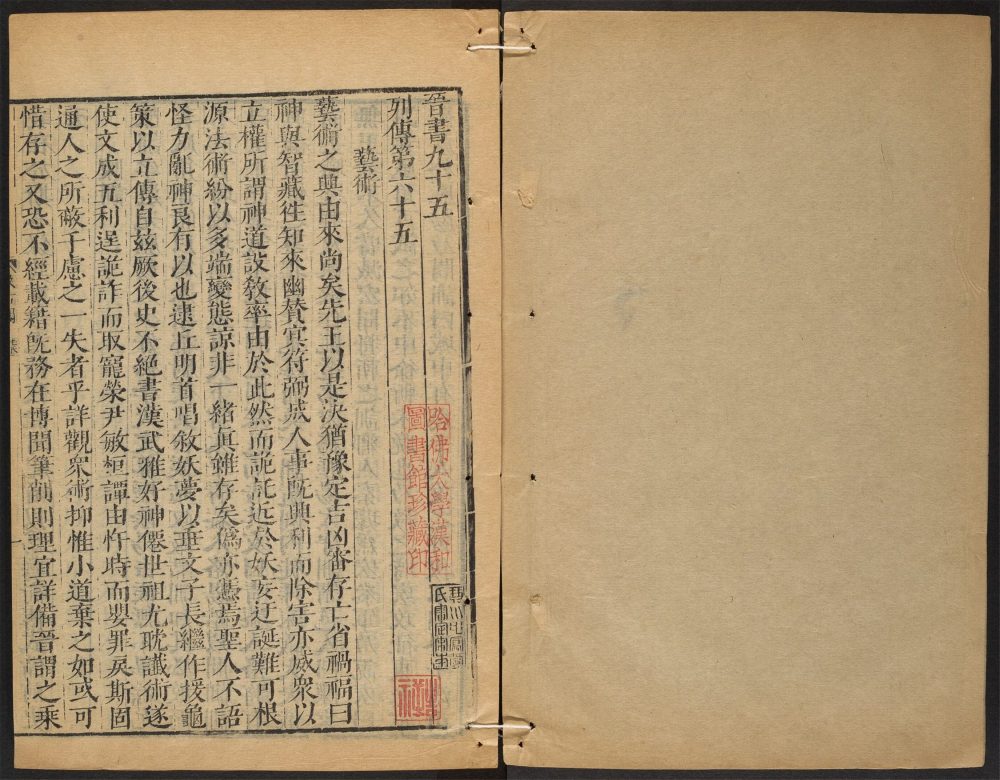 晉書九十五
列傳第六十五
藝術
藝術之興由來尚矣先王以是決猶豫定吉凶審存亡省禍福曰
神與智藏往知來幽賛冥符弼成人事旣興利而除害亦威衆以
立權所謂神道設敎率由於此然而詭託近於妖妄迂誕難可根
源法術紛以多端變態諒非一緒眞雖存矣僞亦憑焉聖人不語
怪力亂神良有以也逮丘明首唱敘妖夢以垂文子長繼作援龜
策以立傳自玆厥後史不絕書漢武雅好神僊世祖尤耽讖術遂
使文成五利逞詭詐而取寵榮尹敏桓譚由忤時而嬰罪戾斯固
通人之所蔽千慮之一失者乎詳觀衆術抑惟小道棄之如或可
惜存之又恐不經載籍旣務在博聞筆削則理宜詳備晉謂之乘
哈佛大學漢和
圖書館珍藏印